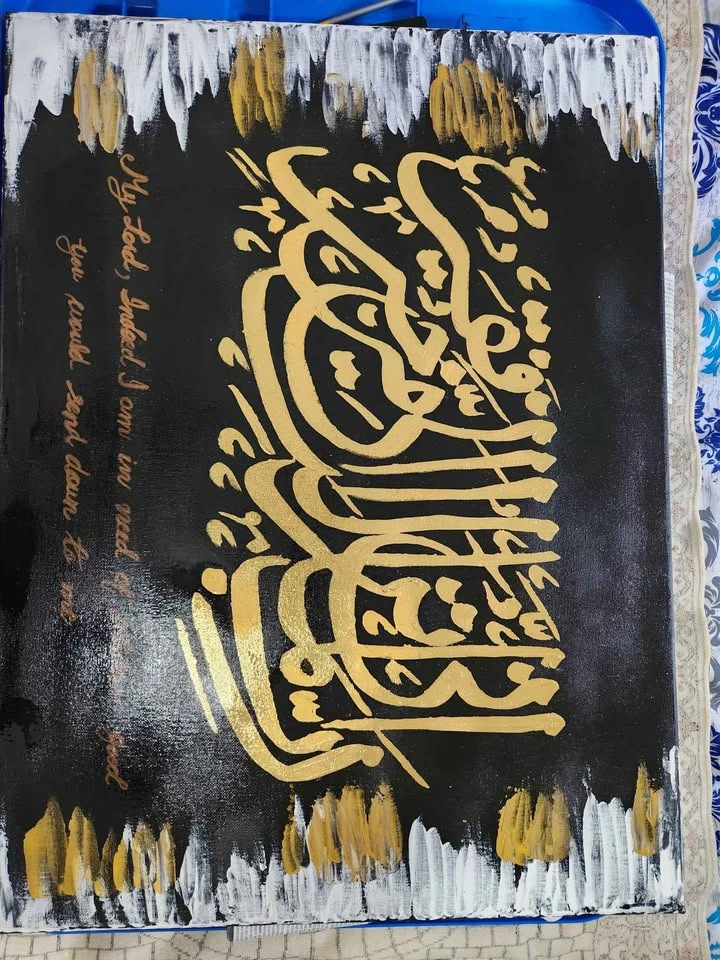 رب إني لما أنزلت إلي من خير فقير
My Lord, Indeed I am in need of good
you would send down to me